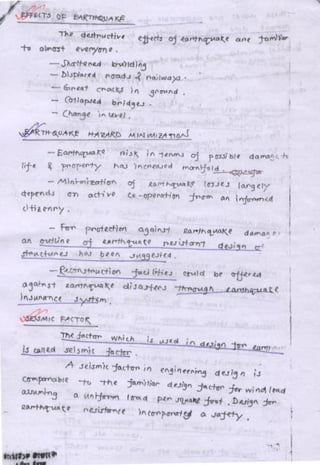 EFFECTS OF EARTHQUAKE
The destructive effects of earthquake are familiar
to almost everyone.
— Shattered building
— Displaced roads & railways.
— Great cracks in ground.
— Collapsed bridges.
— Change in level.
EARTHQUAKE HAZARD MINIMIZATION
— Earthquake risk in terms of possible damage to
life & property has increased manifold
— Minimization of earthquake losses largely
depends on active co-operation from an informed
citizenry.
— For protection against earthquake damage
an outline of earthquake resistant design of
structures has been suggested.
— Reconstruction facilities could be offered
against earthquake disasters through earthquake
insurance system.
SEISMIC FACTOR
The factor which is used in design for earth
is called seismic factor.
A seismic factor in engineering design is
comparable to the familiar design factor for wind load
assuming a uniform load per square foot. Design for
earthquake resistence incorporated a safety.